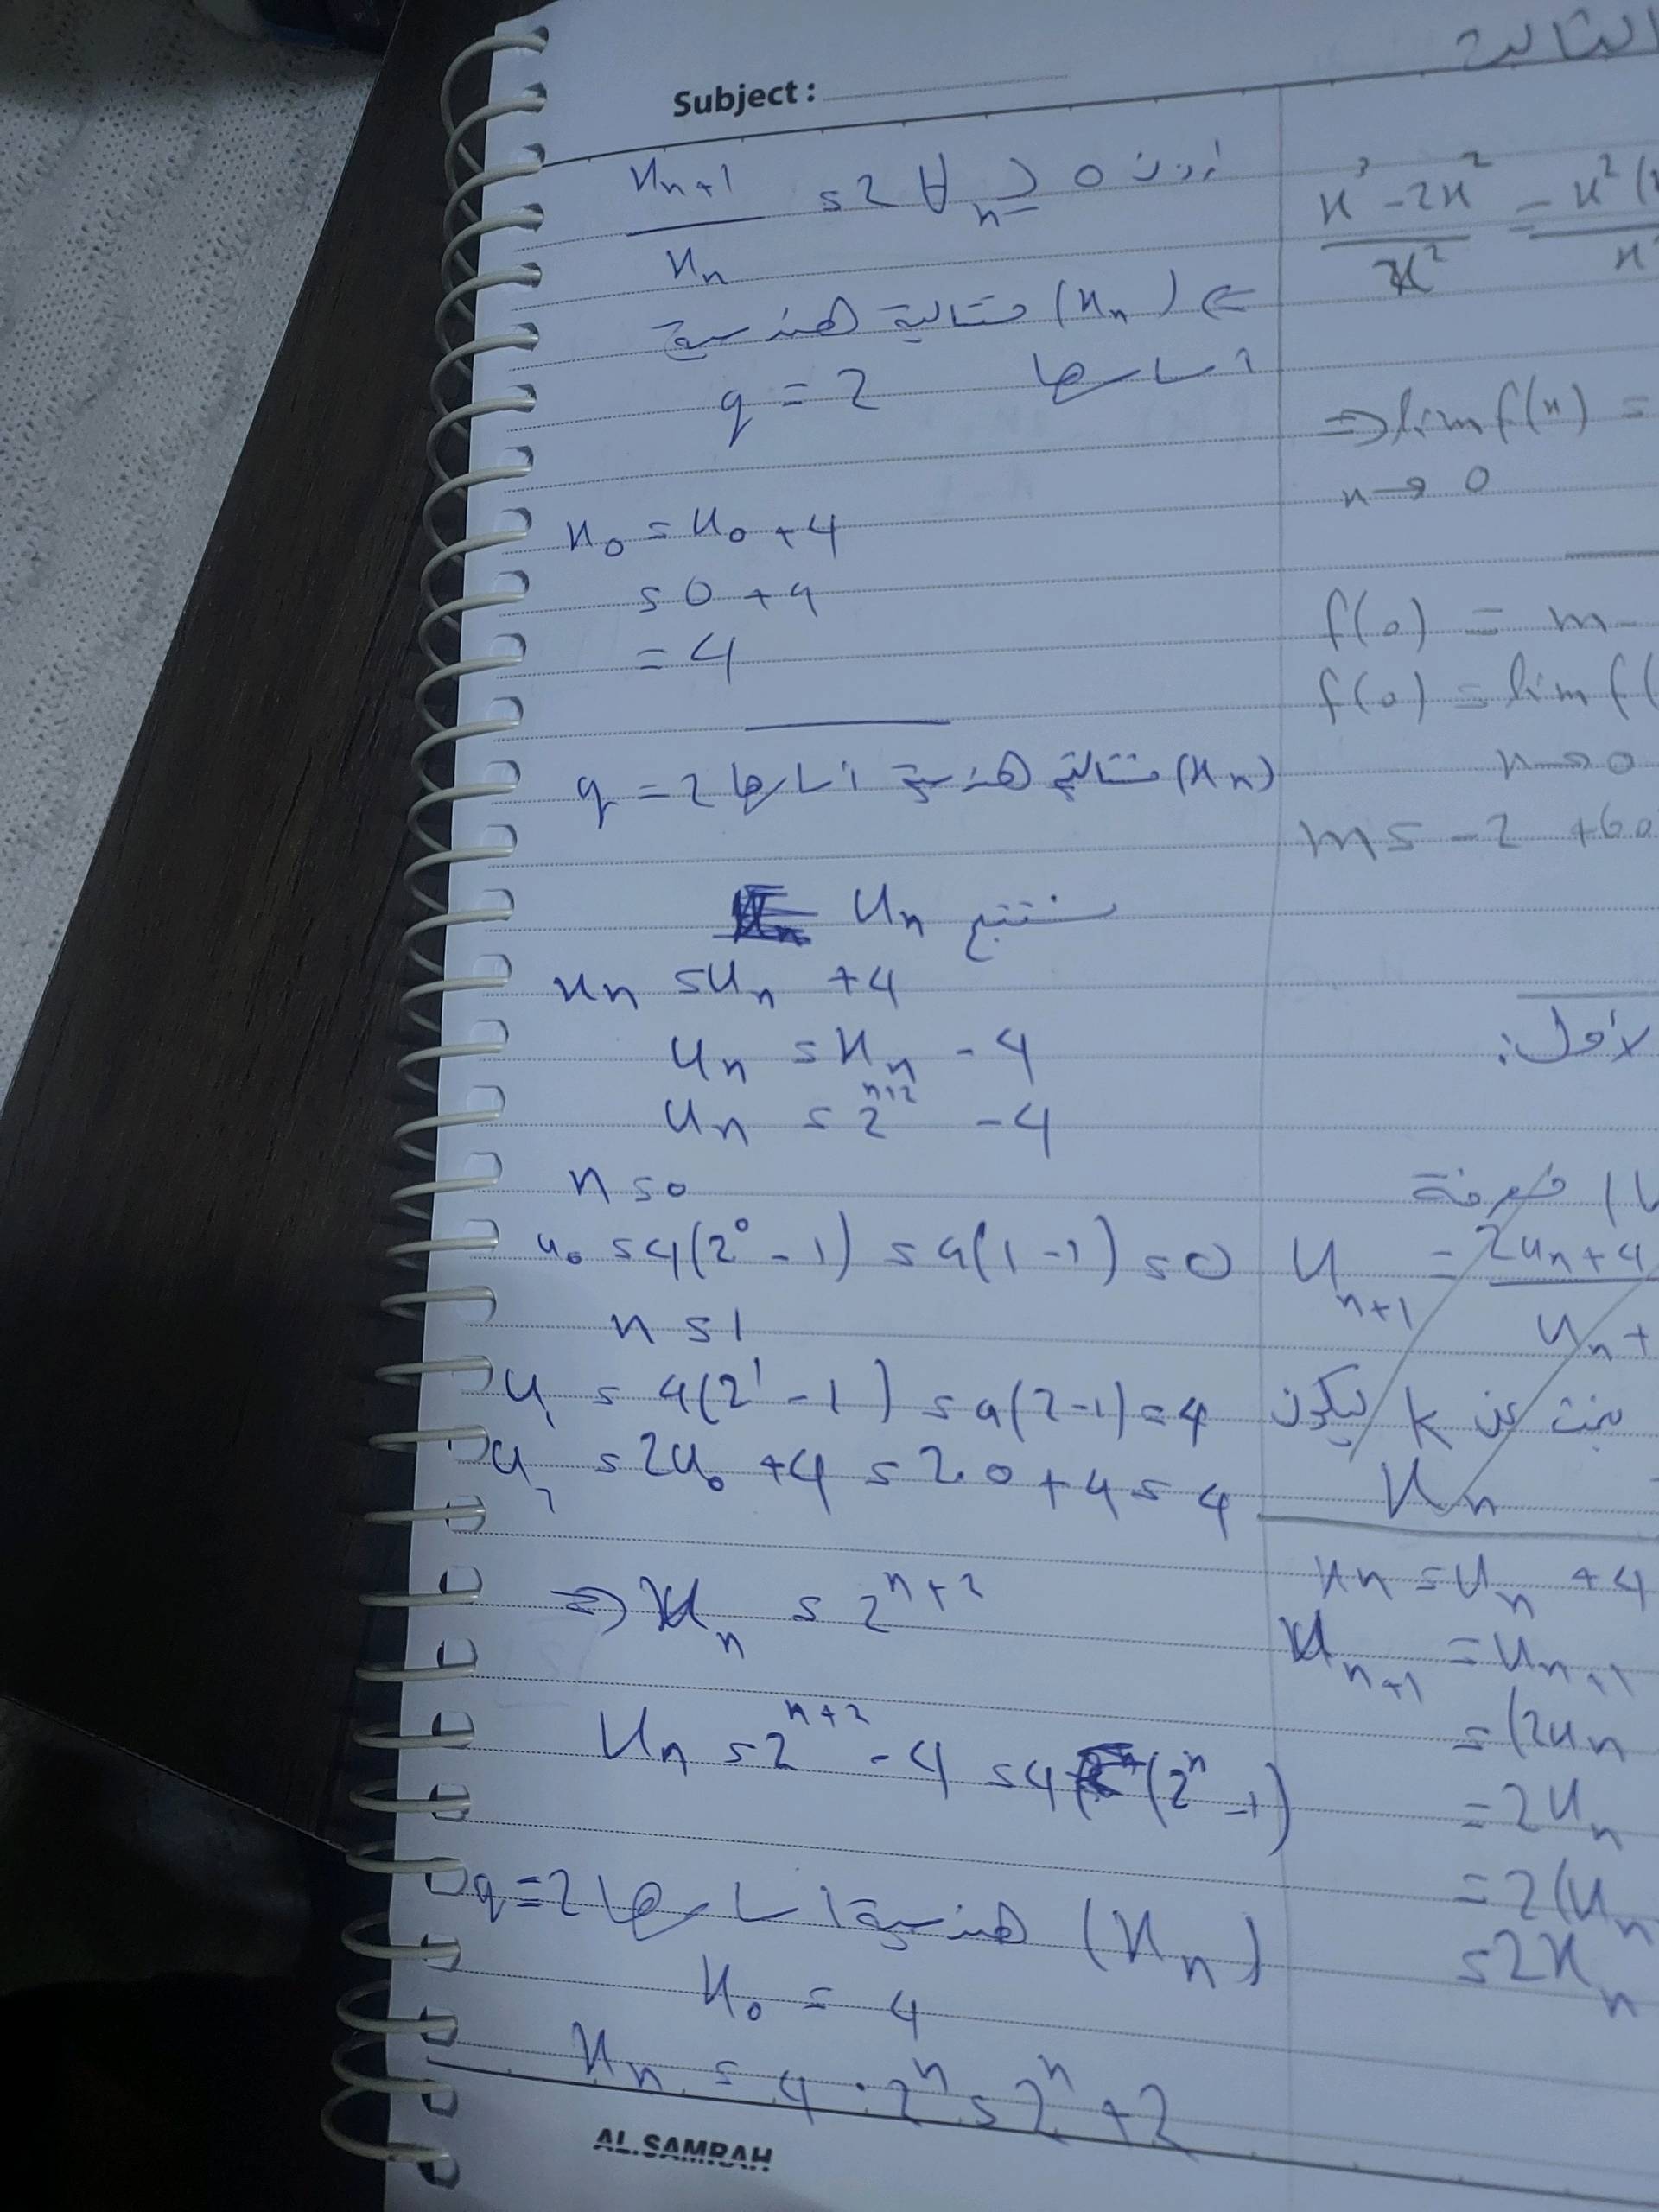 Subject :
x_{n+1} / x_n = 2 ∀ n ≥ 0
⇐ (x_n) متتالية هندسية
أساسها q = 2
x_0 = u_0 + 4
= 0 + 4
= 4
(x_n) متتالية هندسية أساسها q = 2
نستنتج u_n
x_n = u_n + 4
u_n = x_n - 4
u_n = 2^{n+2} - 4
n = 0
u_0 = 4(2^0 - 1) = 4(1 - 1) = 0
n = 1
u_1 = 4(2^1 - 1) = 4(2-1) = 4
u_1 = 2u_0 + 4 = 2.0 + 4 = 4
⇒ x_n = 2^{n+2}
u_n = 2^{n+2} - 4 = 4(2^n - 1)
(x_n) هندسية أساسها q = 2
x_0 = 4
x_n = 4 · 2^n = 2^{n+2}
AL.SAMRAH
x^3 - 2x^2 / x^2 = x^2(
⇒ lim f(x) =
x → 0
f(0) = m -
f(0) = lim f(
x → 0
m = -2 +60
u_{n+1} = 2u_n + 4
u_n +
k ليكون
x_n
x_n = u_n + 4
x_{n+1} = u_{n+1}
= (2u_n
= 2u_n
= 2(u_n
= 2x_n